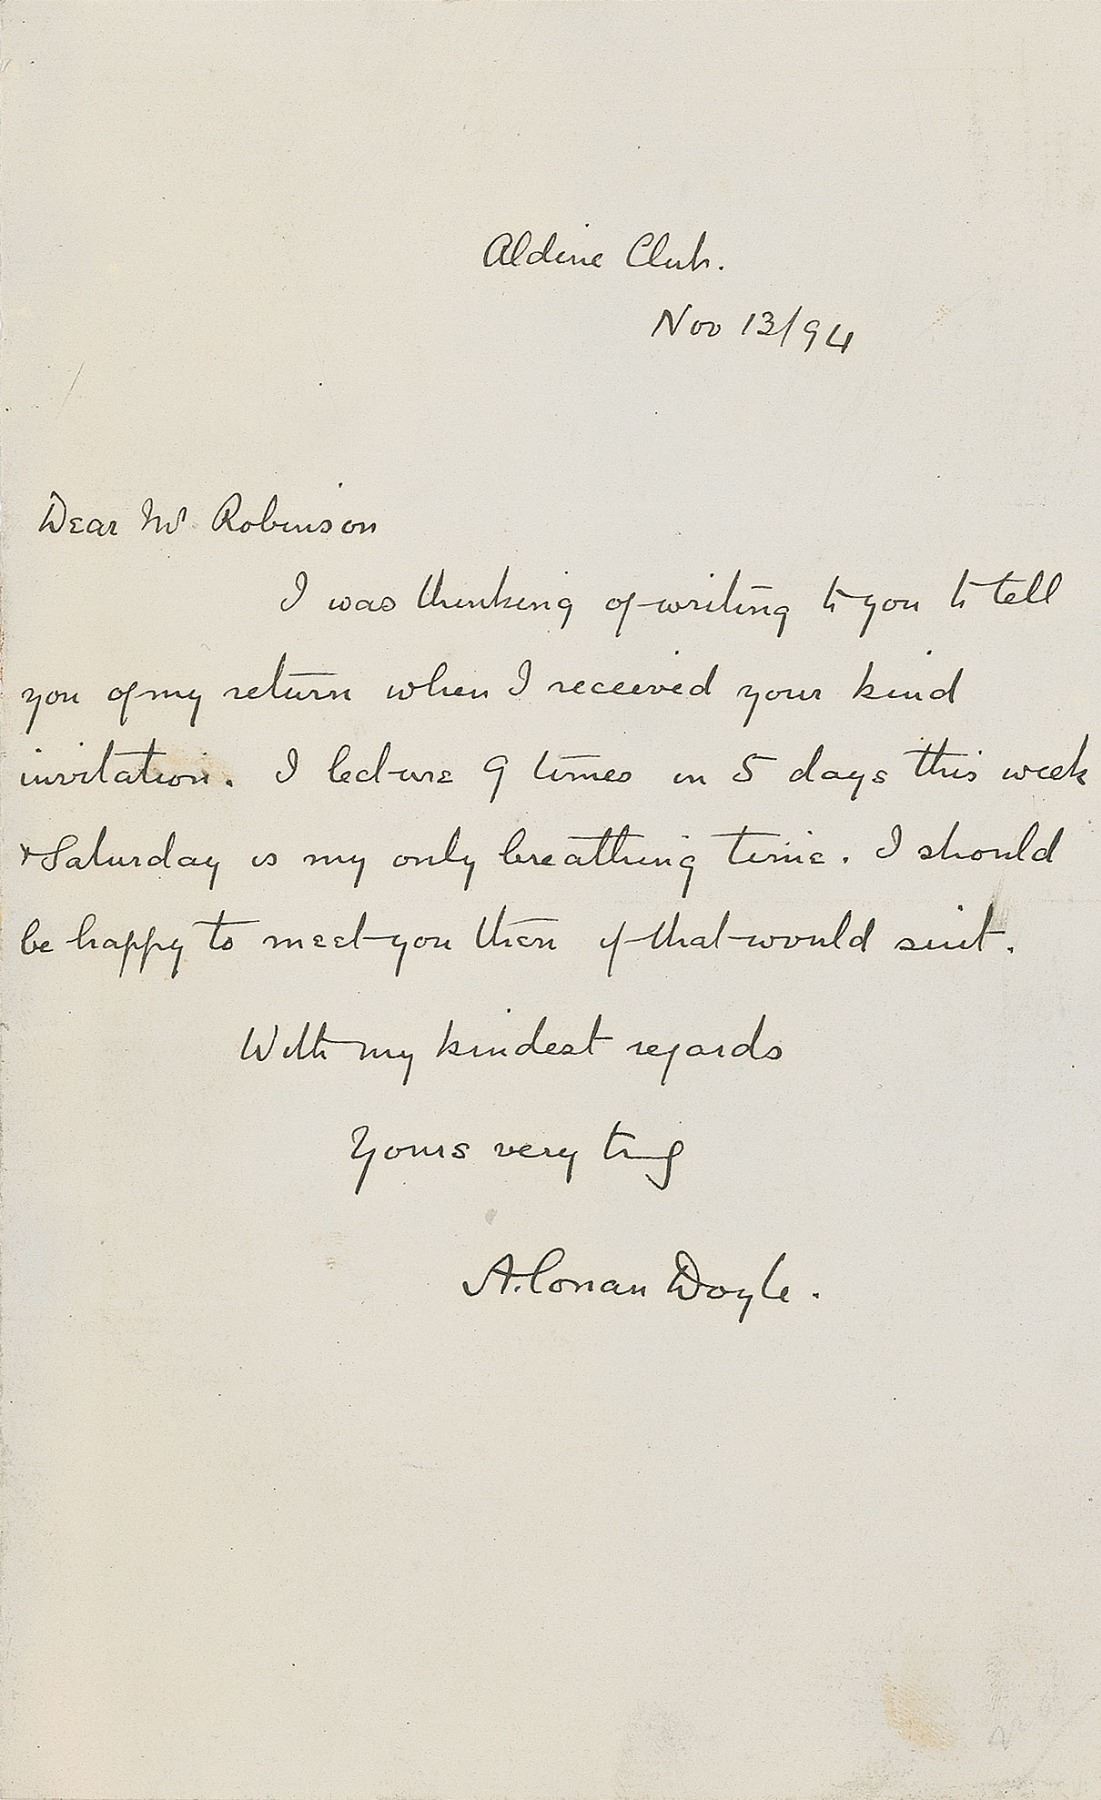 Aldine Club.
Nov 13/94
Dear Mr Robinson
I was thinking of writing to you to tell
you of my return when I received your kind
invitation. I lecture 9 times in 5 days this week
& Saturday is my only breathing time. I should
be happy to meet you then if that would suit.
With my kindest regards
Yours very truly
A. Conan Doyle.